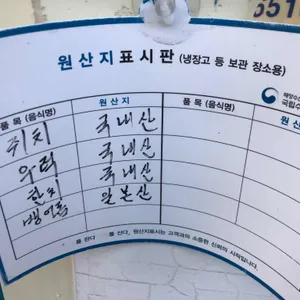 6517
원산지표시판 (냉장고 등 보관 장소용)
해양수산
국립수
품목(음식명) 원산지 품목(음식명) 원산
쥐치 국내산
우럭 국내산
한치 국내산
뱅어돔 일본산
품 판다 품 산다, 원산지표시는 고객과의 소중한 신뢰의 시작입니다.